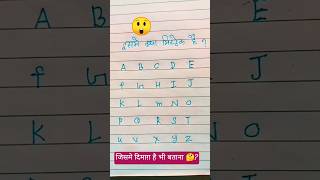 इसमे क्या मिस्टेक है ?
A B C D E
f G H I J
K L m N O
P Q R S T
u v x y z
जिसमे दिमाग़ है भी बताना 🤔?